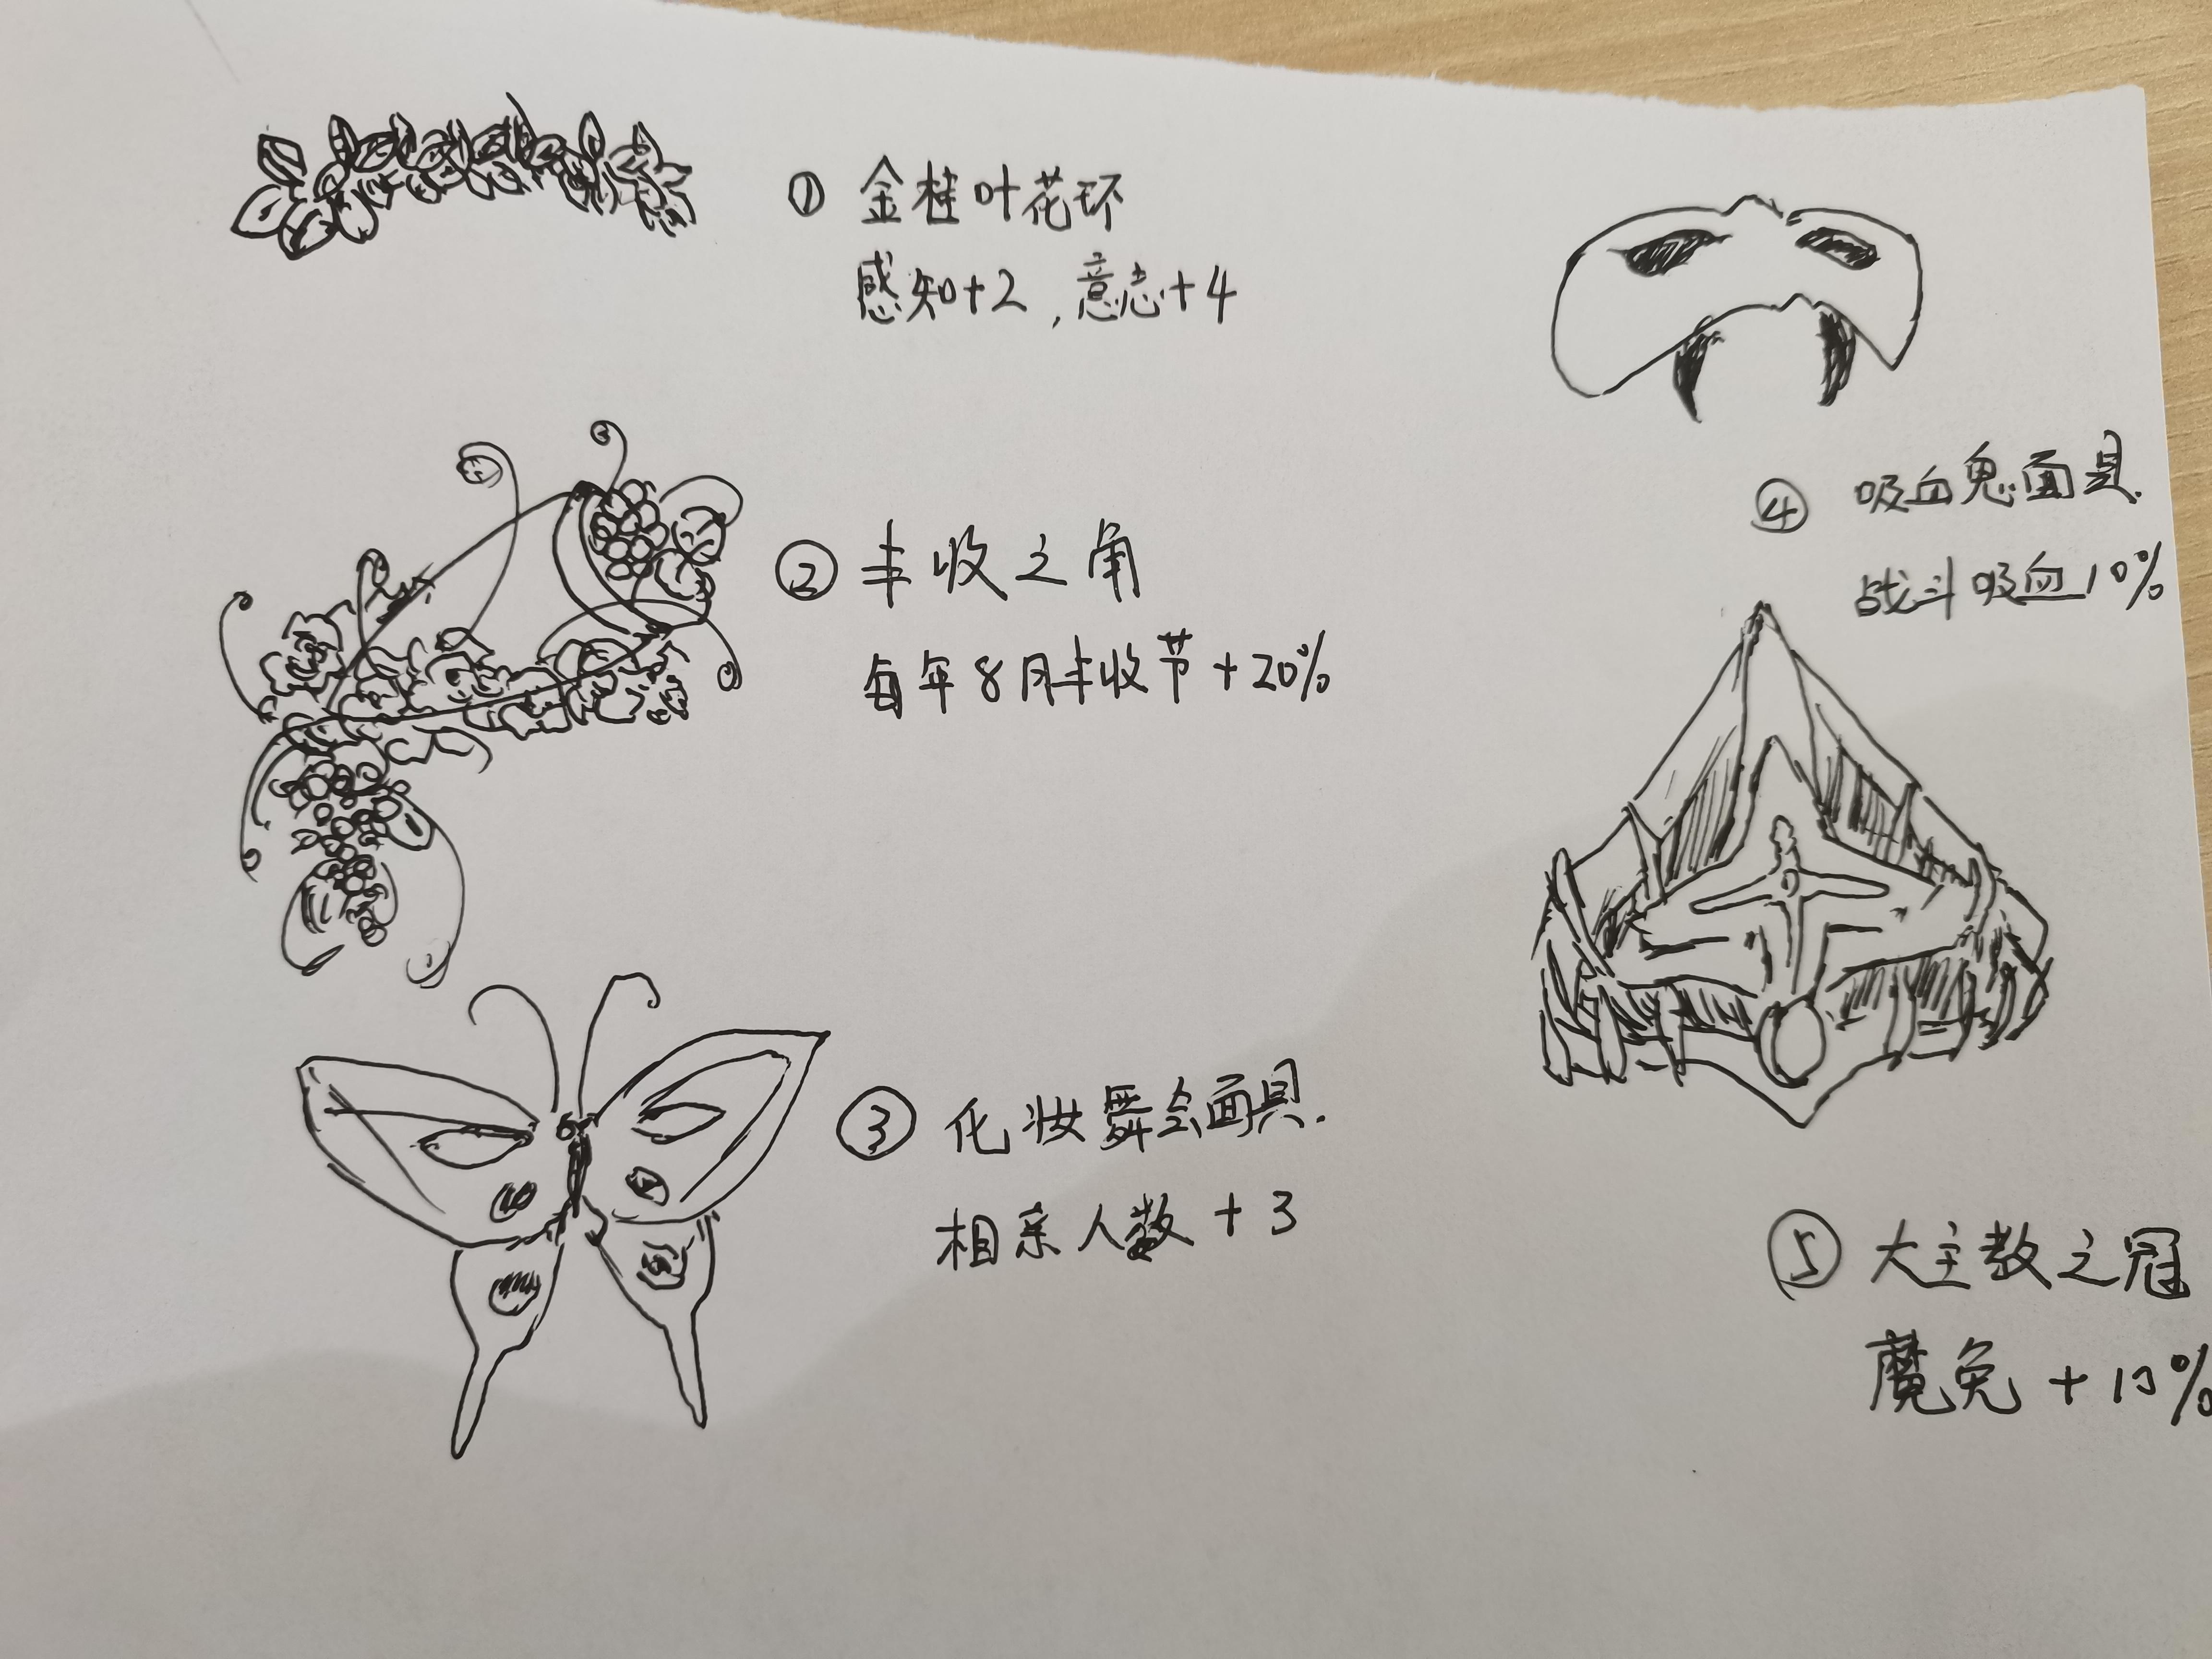 ① 金桂叶花环
感知+2，意志+4
② 丰收之角
每年8月丰收节+20%
③ 化妆舞会面具.
相亲人数+3
④ 吸血鬼面具.
战斗吸血10%
⑤ 大主教之冠
魔免+10%